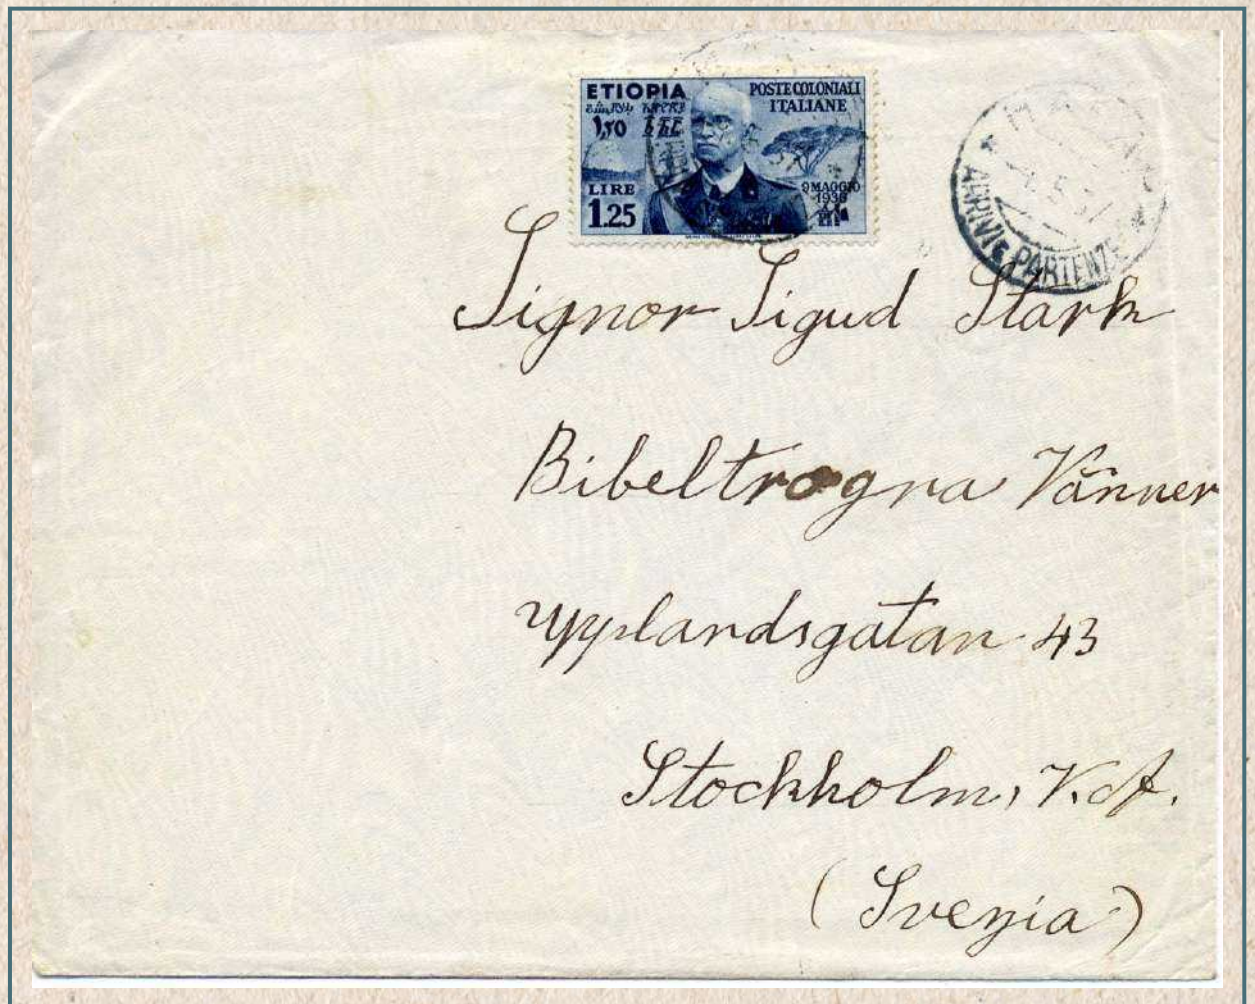 ETIOPIA
POSTE COLONIALI
ITALIANE
LIRE
1.25
9 MAGGIO
1936
ARRIVI E PARTENZE
Signor Sigud Stark
Bibeltrogna Vänner
Upplandsgatan 43
Stockholm,
(Svezia)